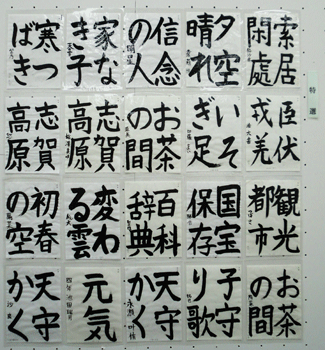 特選
索居
閑處
夕空
晴れ
信念
の人
家な
き子
寒つ
ばき
臣伏
戎羌
いそ
ぎ足
お茶
の間
志賀
高原
志賀
高原
観光
都市
国宝
保存
百科
辞典
変わ
る雲
初春
の空
お茶
の間
子守
り歌
天守
かく
元気
天守
かく